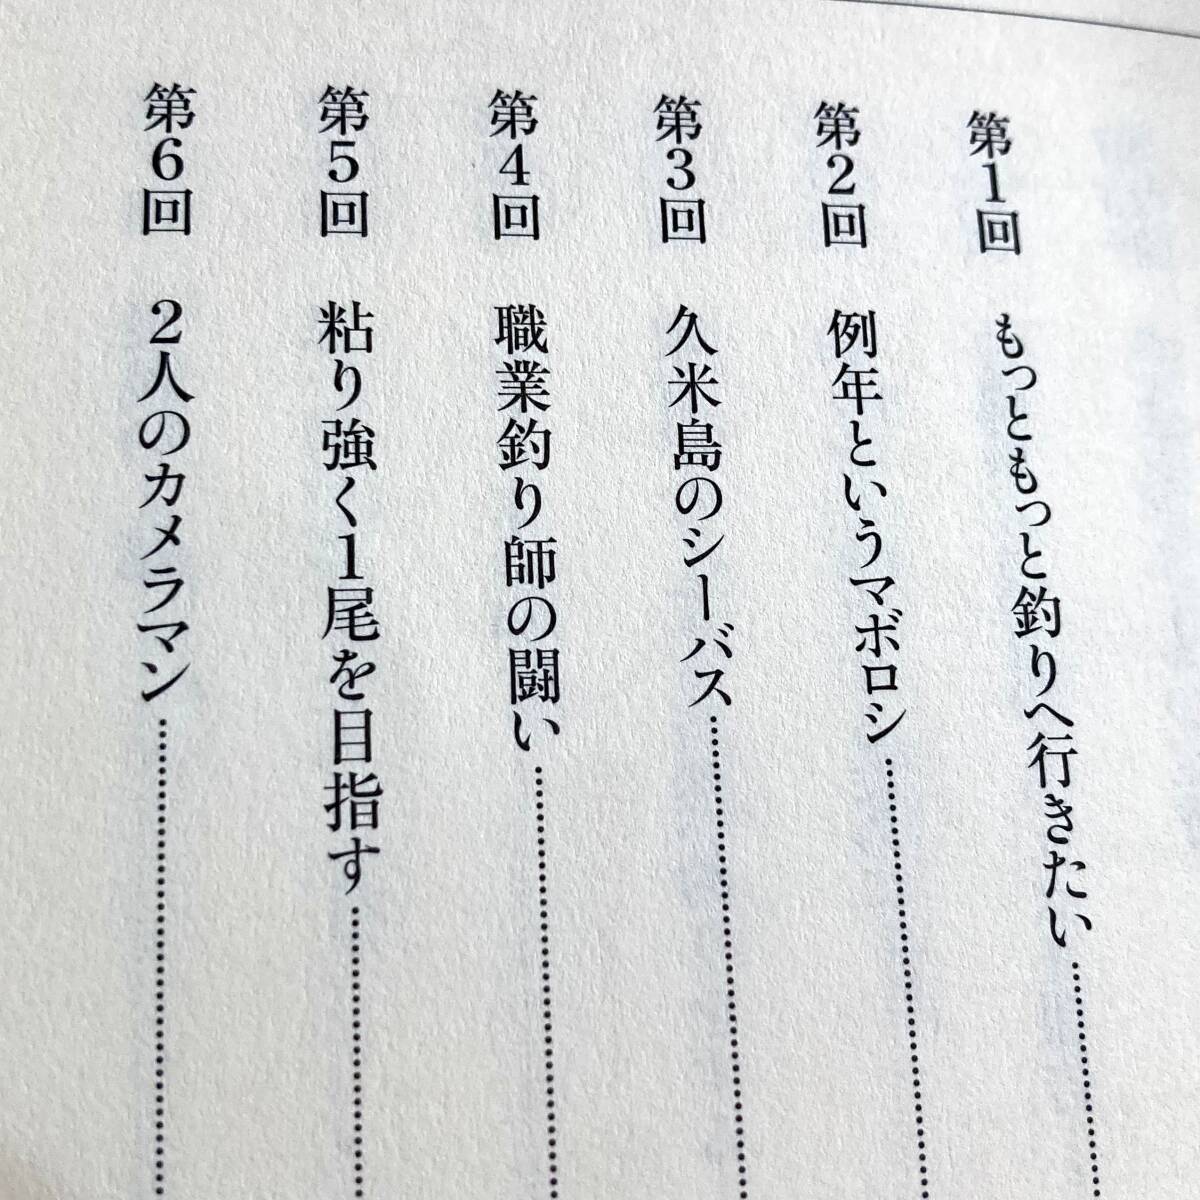 第1回 もっともっと釣りへ行きたい
第2回 例年というマボロシ
第3回 久米島のシーバス
第4回 職業釣り師の闘い
第5回 粘り強く1尾を目指す
第6回 2人のカメラマン